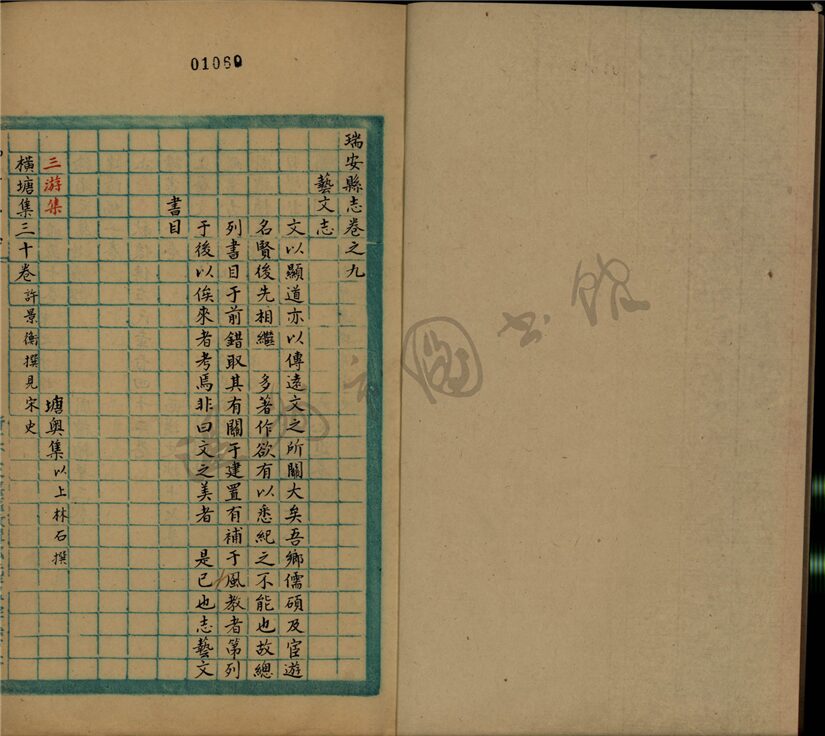 01060
瑞安縣志卷之九
藝文志
文以顯道亦以傳遠文之所關大矣吾鄉儒碩及宦遊
名賢後先相繼 多著作欲有以悉紀之不能也故總
列書目于前錯取其有關于建置有補于風教者第列
于後以俟來者考焉非曰文之美者 是已也志藝文
書目
三游集 塘奧集以上林石撰
橫塘集三十卷許景衡撰見宋史
圖書館